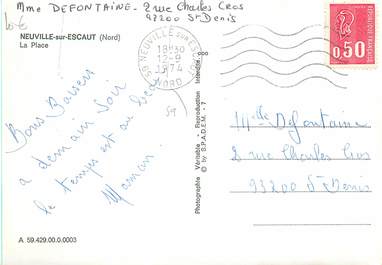 Mme DEFONTAINE - 2 rue Charles Cros
93200 St Denis
NEUVILLE-sur-ESCAUT (Nord)
La Place
59 NEUVILLE SUR ESCAUT
18H30
12-9
1974
NORD
0,50
59
Bons Baisers
a demain soir
le temps est au beau
Maman.
Photographie Véritable - Reproduction Interdite
© by S.P.A.D.E.M. - 7
Mlle Defontaine
2 rue Charles Cros
93200 St Denis
A 59.429.00.0.0003